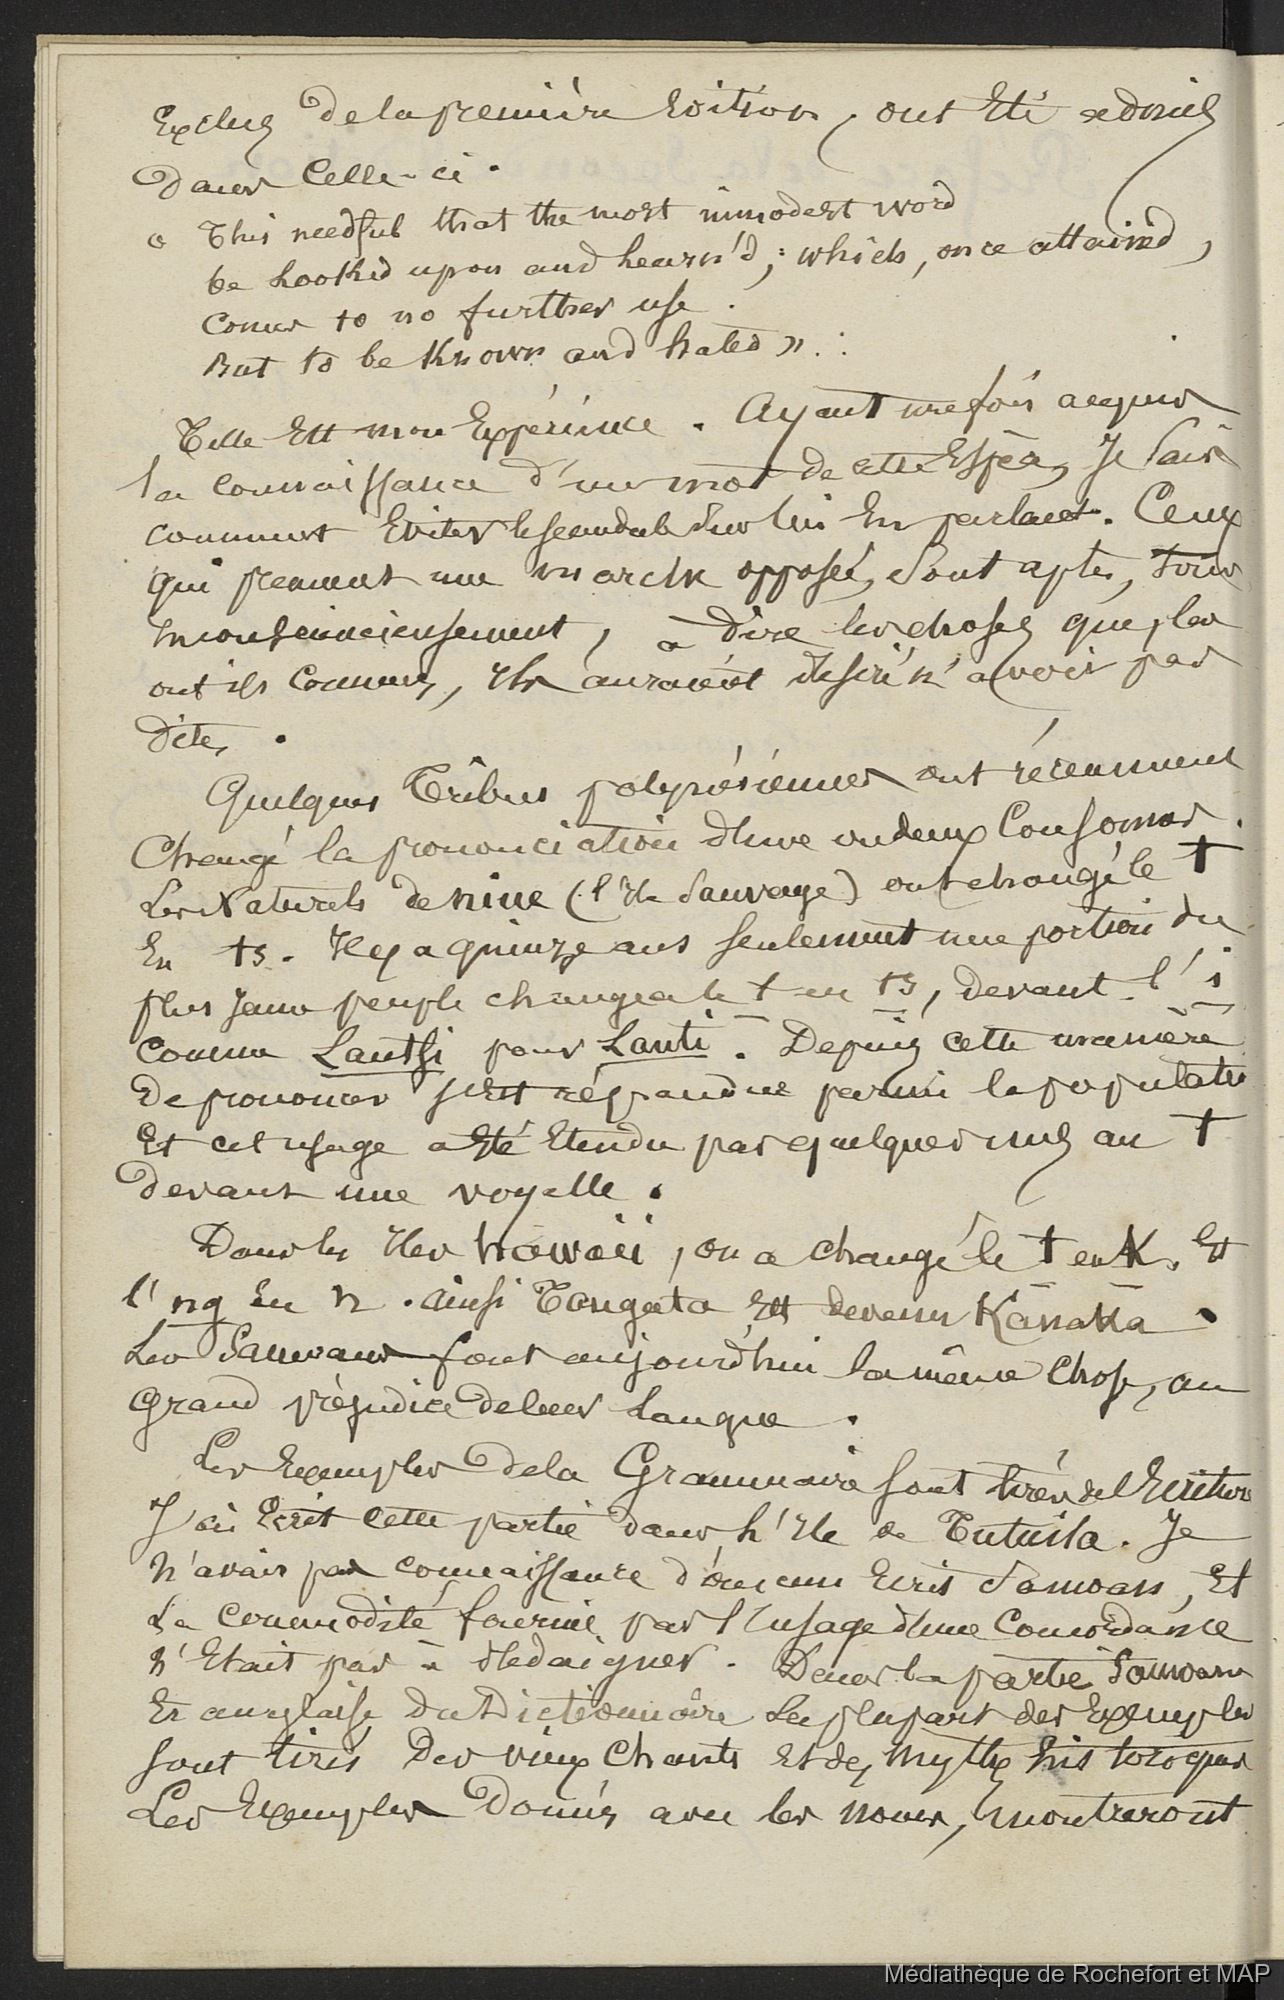 Exclus de la première Edition, ont Eté admis
dans Celle-ci.
« This needful that the most immodest word
be Looked upon and hearn'd; which, once attained,
Comes to no further use.
But to be Known and hated ».
Telle Est mon Expérience. Ayant une fois acquis
la connaissance d'un mot de cette Espèce, Je Sais
comment Eviter le scandale En parlant. Ceux
qui prennent une marche opposée, Sont aptes, Tous
inconsciencieusement, à dire les choses que, les
ont ils Connues, Ils auraient désiré n'avoir pas
dites.
Quelques Tribus polynésiennes ont récemment
Changé la prononciation d'une ou deux Consonnes.
Les Naturels de Niue (l'Ile Sauvage) ont changé le t
En ts. Il y a quinze ans seulement une portion du
plus Jeune peuple changea le t en ts, devant l'i
Comme Lautsi pour Lauti. Depuis cette manière
De prononcer s'est répandue parmi la population
Et cet usage a Eté Etendu par quelques uns au t
devant une voyelle.
Dans les Iles hawaii, on a changé le t en K, Et
l'ng En n. ainsi Tangata Est devenu Kanaka.
Les Samoans font aujourd'hui la même Chose, au
grand préjudice de leur Langue.
Les Exemples de la Grammaire sont tirés de l'Ecriture
J'ai Ecrit cette partie dans l'Ile de Tutuila. Je
N'avais pas connaissance d'aucun Ecrit Samoan, Et
La Commodité fournie par l'usage d'une Concordance
N'Etait pas à dédaigner. Dans la partie Samoane
Et anglaise du Dictionnaire La plupart des Exemples
sont tirés Des vieux Chants Et des mythes historiques
Les Exemples Donnés avec les noms, montreront
Médiathèque de Rochefort et MAP